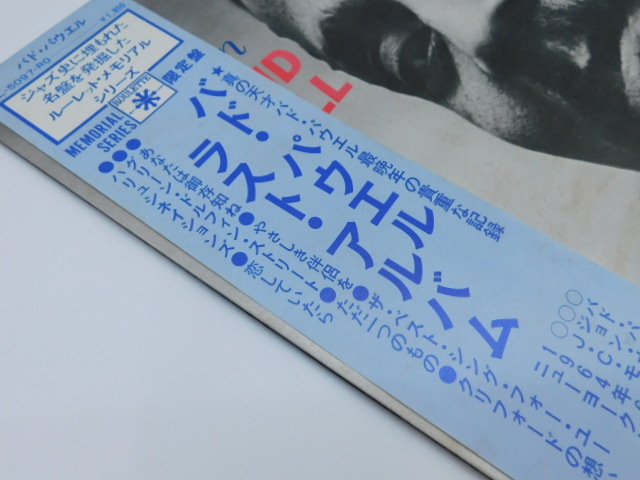 バド・パウエル
¥1,800
L-5097-RO
ジャズ史に埋もれた
名盤を発掘した
ルーレット・メモリアル
シリーズ
ROULETTE
MEMORIAL
SERIES
米
限定盤
★真の天才バド・パウエル最晩年の貴重な記録
バド・パウエル
ラスト・アルバム
●やさしき伴侶を●ザ・ベスト・シング・フォー・ユー
ストリート●ただ一つのもの●クリフォードの想い
恋していたら
○○○
バド・パ
ジョン・
J・C・モ
1964年6
ニューヨーク
ND
LL